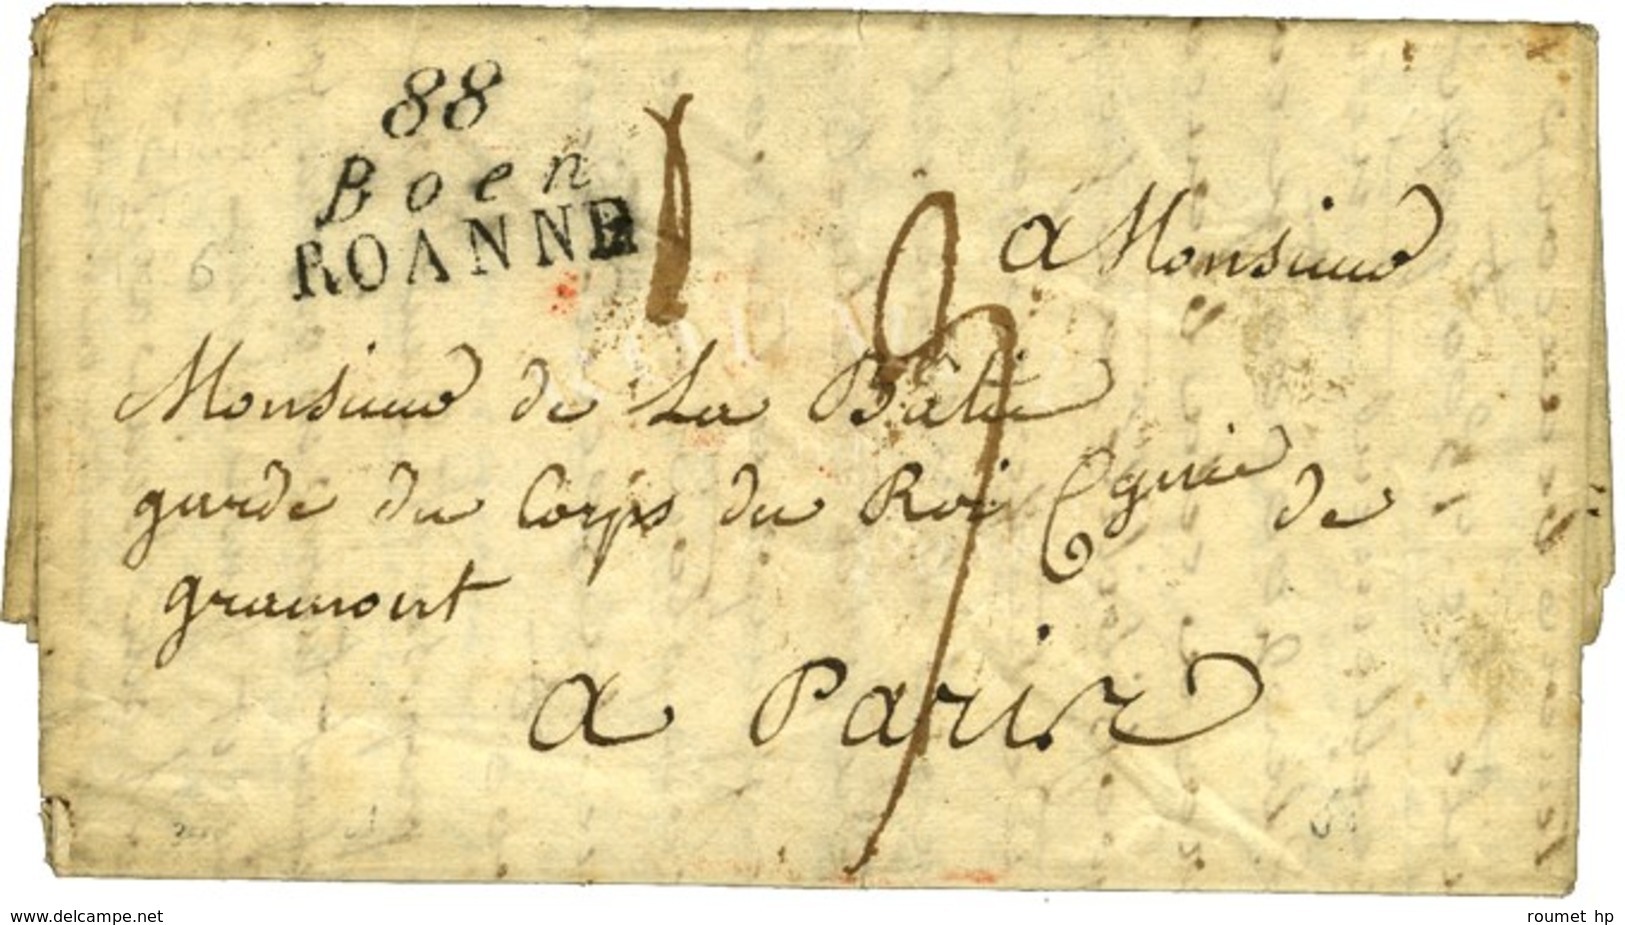 88
Boen
ROANNE
a Monsieur
Monsieur de La Bâtie
garde du Corps du Roi Cgnie de
gramont
a Paris
www.delcampe.net
roumet hp